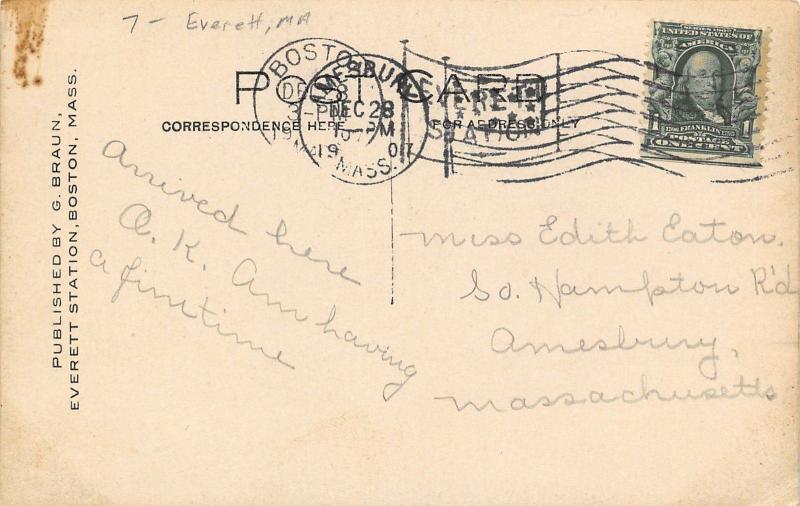 7 - Everett, MA
POST CARD
CORRESPONDENCE HERE
FOR ADDRESS ONLY
BOSTON
DEC 28
MASS.
AMESBURY
DEC 28
PM
1907
MASS.
EVERETT
STATION
SERIES 1902
UNITED STATES OF
AMERICA
FRANKLIN
1 1
POSTAGE
ONE CENT
PUBLISHED BY G. BRAUN,
EVERETT STATION, BOSTON, MASS.
Arrived here
O. K. Am having
a fine time
Miss Edith Eaton.
So. Hampton R'd
Amesbury,
Massachusetts